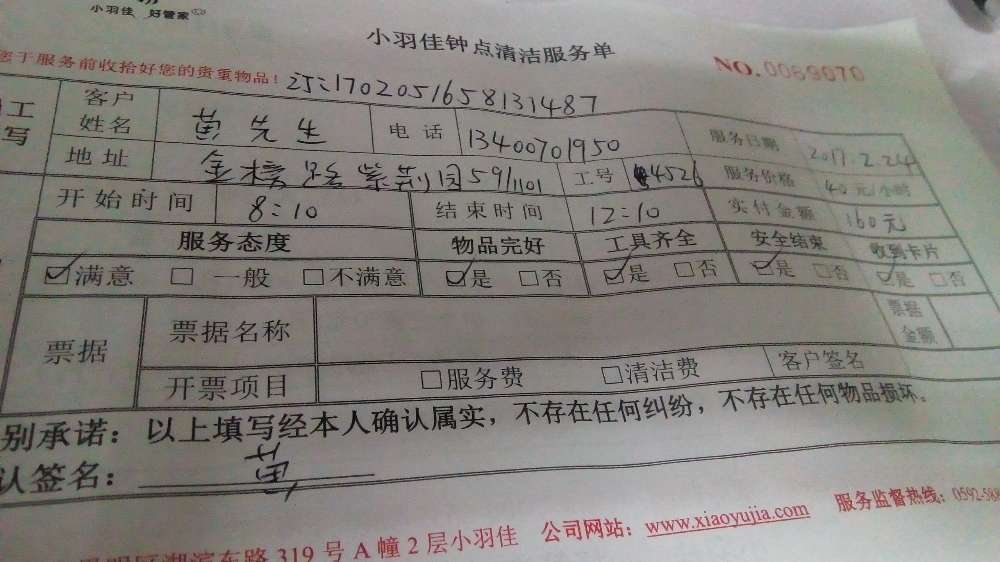 小羽佳 好管家
小羽佳钟点清洁服务单
NO.0069070
您于服务前收拾好您的贵重物品！
订：1702051658131487
工
写
客户姓名 黄先生 电话 13400701950 服务日期 2017.2.24
地址 金榜路紫荆园59/1101 工号 4526 服务价格 40元/小时
开始时间 8:10 结束时间 12:10 实付金额 160元
服务态度 物品完好 工具齐全 安全结束 收到卡片
☑满意 □一般 □不满意 ☑是 □否 ☑是 □否 ☑是 □否 ☑是 □否
票据 票据名称 票据金额
开票项目 □服务费 □清洁费 客户签名
别承诺：以上填写经本人确认属实，不存在任何纠纷，不存在任何物品损坏。
认签名：黄
湖滨东路319号A幢2层小羽佳 公司网站：www.xiaoyujia.com 服务监督热线：0592-588